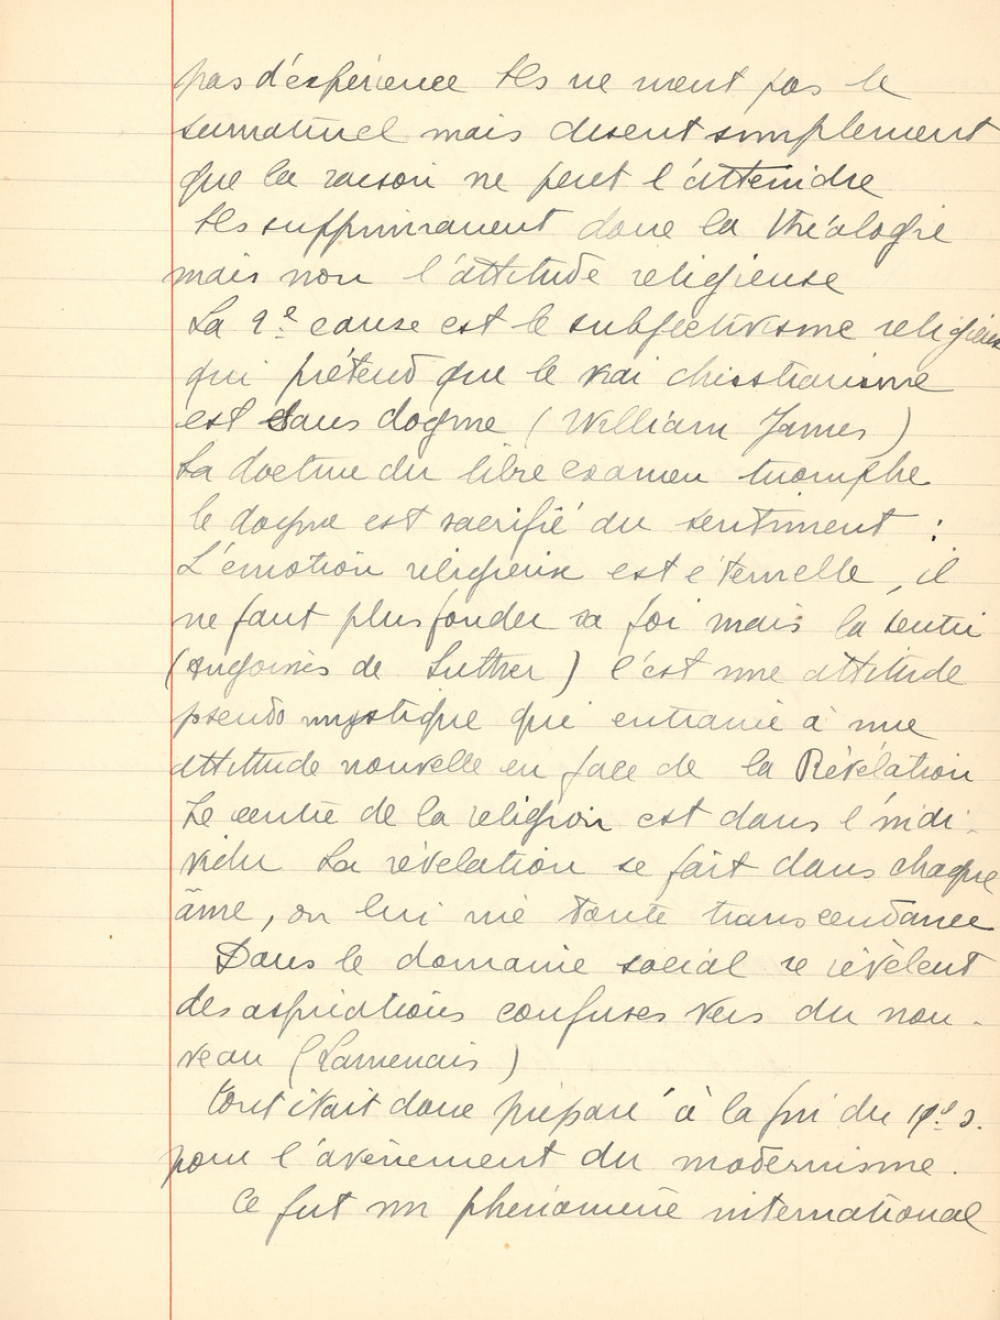 pas d'expérience Ils ne nient pas le
surnaturel mais disent simplement
que la raison ne peut l'atteindre
Ils supprimaient donc la théologie
mais non l'attitude religieuse
La 2e cause est le subjectivisme religieux
qui prétend que le vrai christianisme
est sans dogme (William James)
La doctrine du libre examen triomphe
le dogme est sacrifié au sentiment :
L'émotion religieuse est éternelle, il
ne faut plus fonder sa foi mais la sentir
(angoisses de Luther) c'est une attitude
pseudo mystique qui entraine à une
attitude nouvelle en face de la Révélation
Le centre de la religion est dans l'indi-
vidu La révélation se fait dans chaque
âme, on lui nie toute transcendance
Dans le domaine social se révèlent
des aspirations confuses vers du nou-
veau (Lamenais)
tout était donc préparé à la fin du 19e s.
pour l'avènement du modernisme.
Ce fut un phénomène international